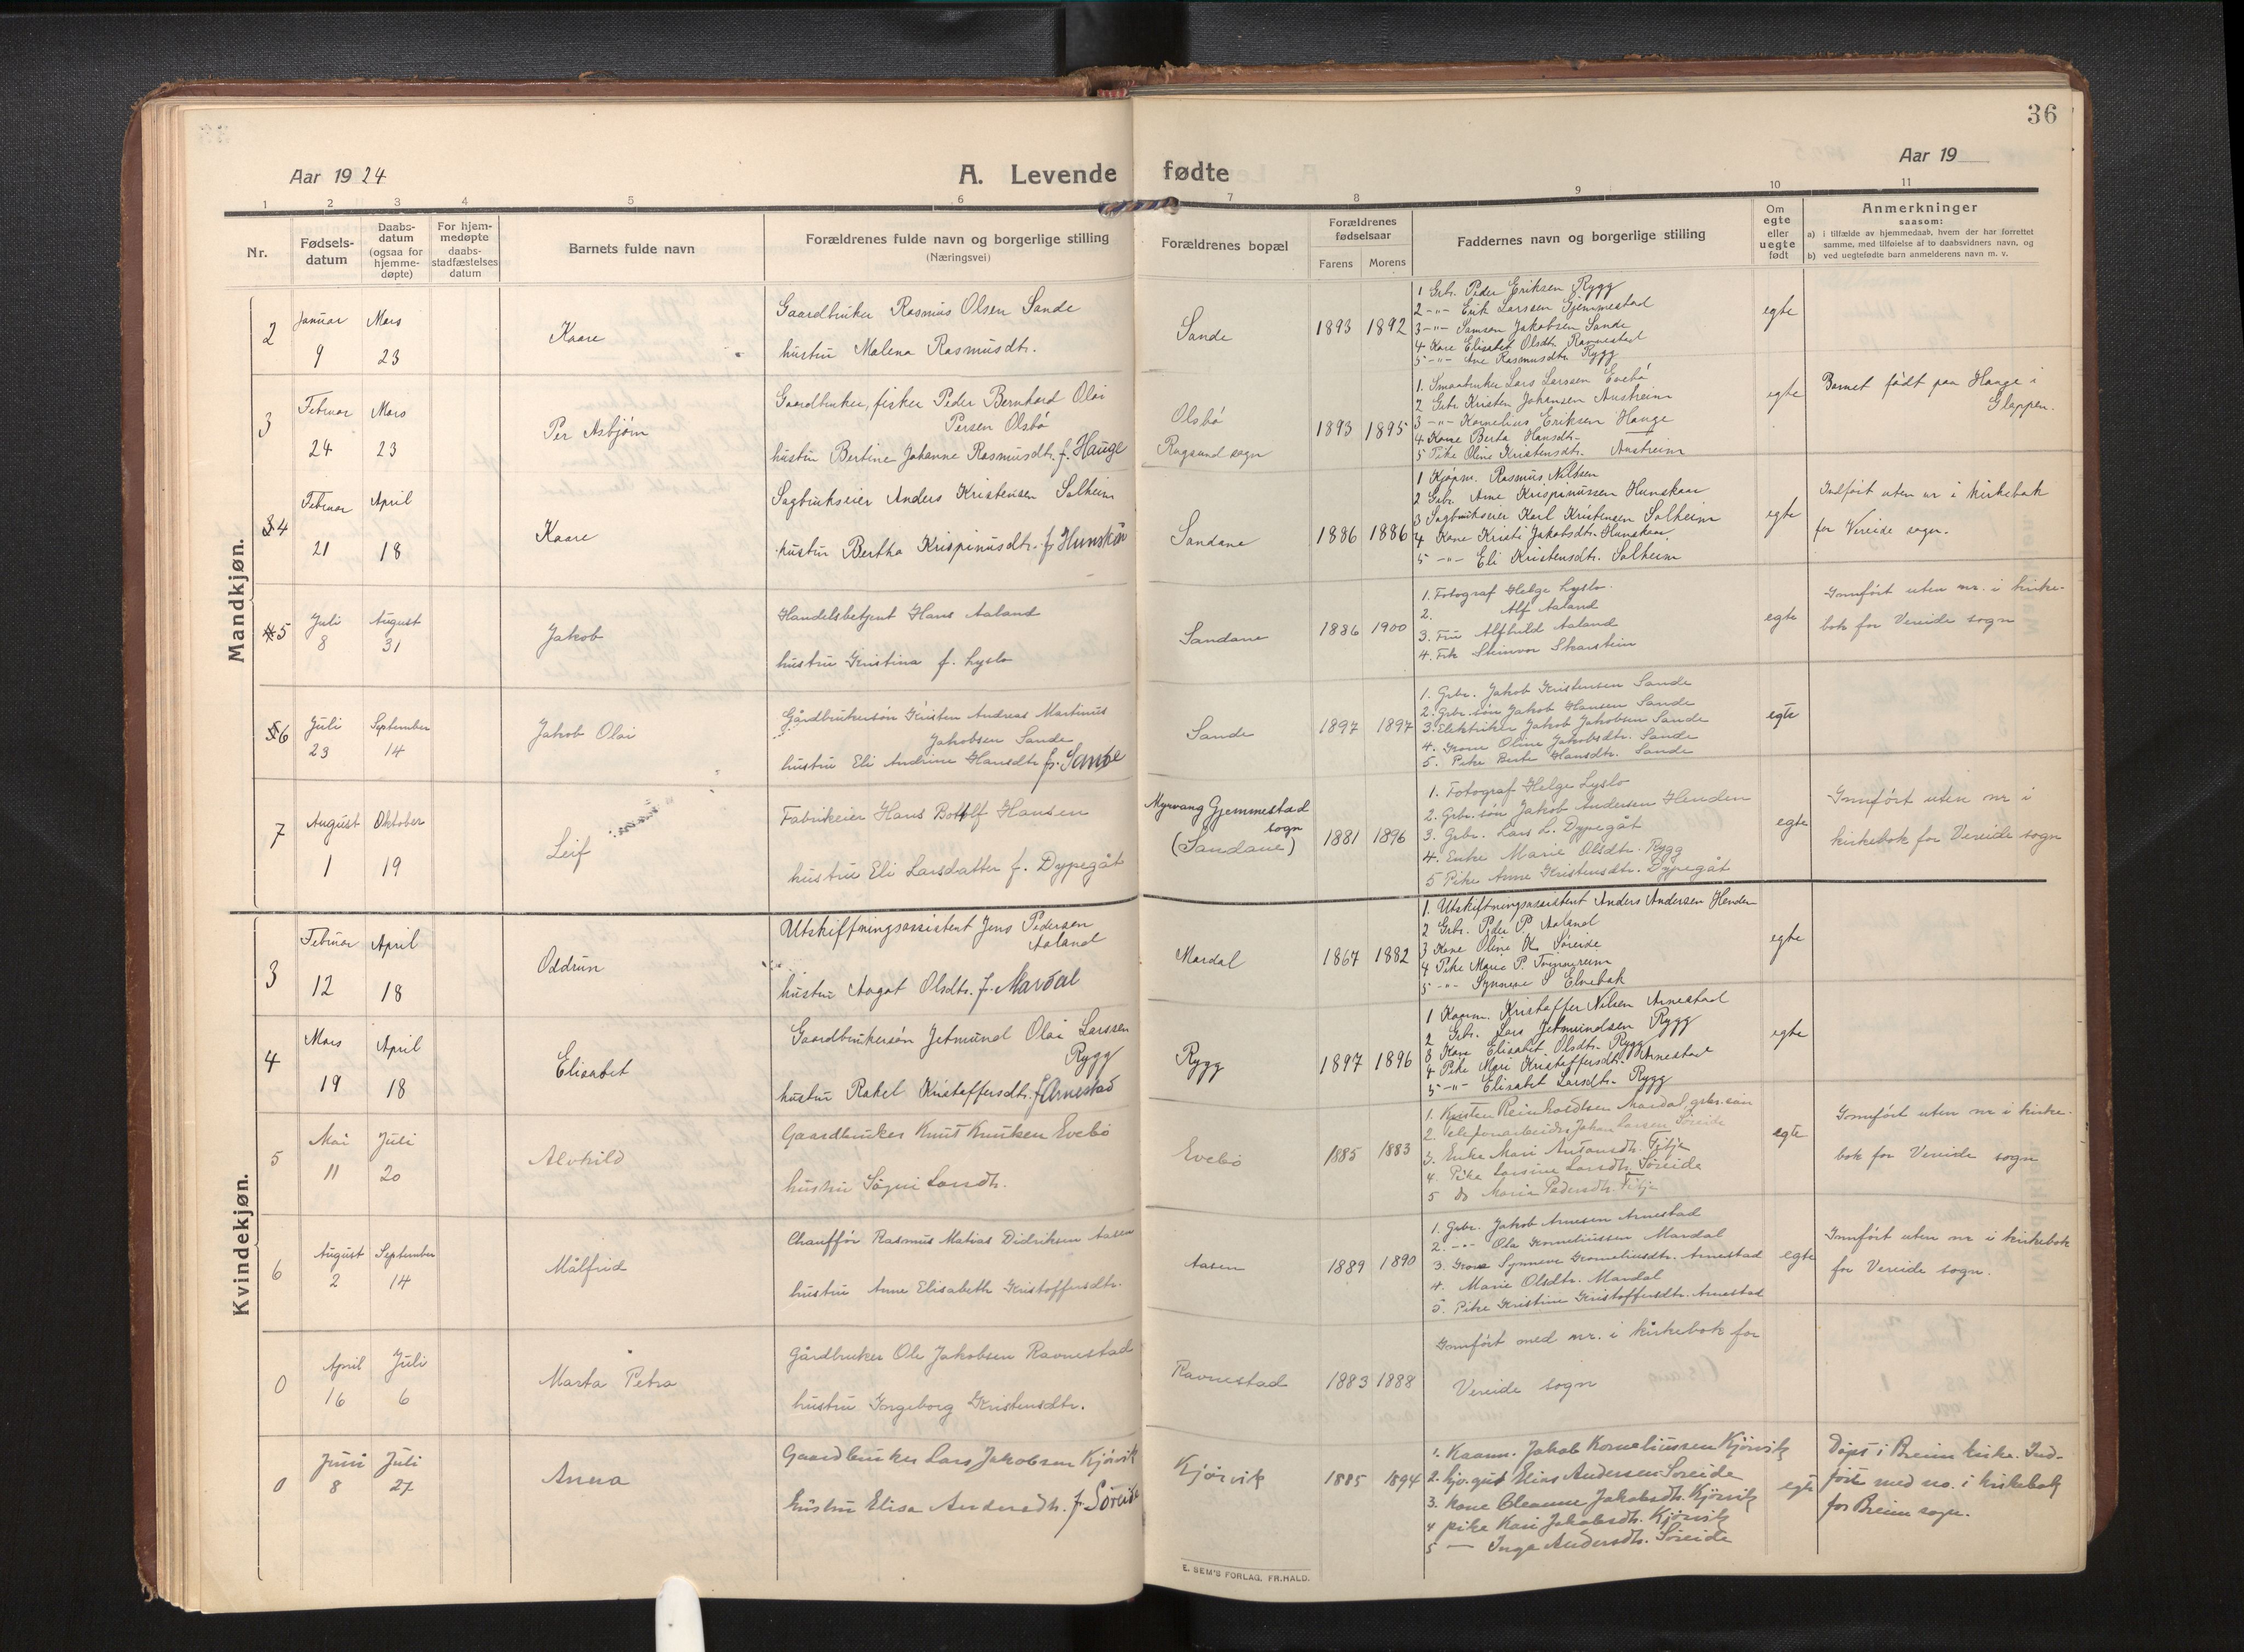 36
Aar 1924
A. Levende fødte
Aar 19
1 2 3 4 5 6 7 8 9 10 11
Nr.
Fødsels-
datum
Daabs-
datum
(ogsaa for
hjemme-
døpte)
For hjem-
medøpte
daabs-
stadfæstelses
datum
Barnets fulde navn
Forældrenes fulde navn og borgerlige stilling
(Næringsvei)
Forældrenes bopæl
Forældrenes
fødselsaar
Farens Morens
Faddernes navn og borgerlige stilling
Om
egte
eller
uegte
født
Anmerkninger
saasom:
a) i tilfælde av hjemmedaab, hvem der har forrettet
samme, med tilføielse af to daabsvidners navn, og
b) ved uegtefødte barn anmelderens navn m. v.
Mandkjøn.
2
Januar 9
Mars 23
Kaare
Gaardbruker Rasmus Olsen Sande
hustru Malena Rasmusdtr.
Sande
1893 1892
1 Grbr. Peder Eriksen Rygg
2 -"- Erik Larssen Gjemmestad
3 -"- Samson Jakobsen Sande
4 Kone Elisabet Olsdtr. Ravnestad
5 -"- Ane Rasmusdtr. Rygg
egte
3
Februar 24
Mars 23
Per Asbjørn
Gaardbruker, fisker Peder Bernhard Olai
Persen Olsbø
hustru Bertine Johanne Rasmusdtr. f. Hauge
Olsbø
Rugsund sogn
1893 1895
1. Smaabruker Lars Larssen Evebø
2 Grbr. Kristen Johansen Austreim
3 -"- Kornelius Eriksen Hauge
4 Kone Berta Hansdtr.
5 Pike Oline Kristensdtr. Austreim
egte
Barnet født paa Hauge i
Gloppen.
4
Februar 21
April 18
Kaare
Sagbrukseier Anders Kristensen Solheim
hustru Bertha Krispinusdtr. f. Hunskår
Sandane
1886 1886
1 Kjøpm. Rasmus Nilsen
2 Grbr. Arne Krispinussen Hunskaar
3 Sagbrukseier Karl Kristensen Solheim
4 Kone Kristi Jakobsdtr. Hunskaar
5 -"- Eli Kristensdtr. Solheim
egte
Indført uten nr i kirkebok
for Vereide sogn.
5
Juli 8
August 31
Jakob
Handelsbetjent Hans Aaland
hustru Kristina f. Lyslo
Sandane
1886 1900
1. Fotograf Helge Lyslo.
2. Alf Aaland
3. Fru Alfhild Aaland
4. Frk Steinvor Skarstein
egte
Innført uten nr. i kirke-
bok for Vereide sogn
6
Juli 23
September 14
Jakob Olai
Gårdbrukersøn Kristen Andreas Martinus
Jakobsen Sande
hustru Eli Andrine Hansdtr f. Sande
Sande
1897 1897
1. Grbr. Jakob Kristensen Sande
2. Grbr. søn Jakob Hansen Sande
3. Elektriker Jakob Jakobsen Sande
4. Kone Oline Jakobsdtr. Sande
5. Pike Berte Hansdtr. Sande
egte
7
August 1
Oktober 19
Leif
Fabrikeier Hans Botolf Hansen
hustru Eli Larsdatter f. Dypegåt
Myrvang Gjemmestad
sogn
(Sandane)
1881 1896
1. Fotograf Helge Lyslo
2. Grbr. søn Jakob Andersen Henden
3. Grbr. Lars L. Dypegåt
4. Enke Marie Olsdtr. Rygg
5 Pike Anne Kristensdtr. Dypegåt
egte
Innført uten nr i
kirkebok for Vereide sogn
Kvindekjøn.
3
Februar 12
April 18
Oddrun
Utskiftningsassistent Jens Pedersen
Aaland
hustru Aagot Olsdtr. f. Mardal
Mardal
1867 1882
1. Utskiftningsassistent Anders Andersen Henden
2 Grbr. Peder P. Aaland
3 Kone Oline K. Søreide
4 Pike Marie P. Tvinnereim
5 -"- Synneve S Elvebak
egte
4
Mars 19
April 18
Elisabet
Gaardbrukersøn Jetmund Olai Larssen
Rygg
hustru Rakel Kristoffersdtr. f Arnestad
Rygg
1897 1896
1 Kaarm. Kristoffer Nilsen Arnestad
2 Grbr. Lars Jetmundsen Rygg
3 Kone Elisabet Olsdtr. Rygg
4 Pike Mari Kristoffersdtr. Arnestad
5 -"- Elisabet Larsdtr. Rygg
egte
5
Mai 11
Juli 20
Alvhild
Gaardbruker Knut Knutsen Evebø
hustru Søgni Larsdtr.
Evebø
1885 1883
1. Kristen Reinholdtsen Mardal grbr.søn
2. Telefonarbeider Johan Larsen Søreide
3. Enke Mari Antonsdtr. Fitje
4. Pike Larsine Larsdtr. Søreide
5 do Marie Pedersdtr. Fitje
egte
Innført uten nr i kirke-
bok for Vereide sogn
6
August 2
September 14
Målfrid
Chauffør Rasmus Matias Didriksen Aasen
hustru Anne Elisabeth Kristoffersdtr.
Aasen
1889 1890
1. Grbr. Jakob Arnesen Arnestad
2. -"- Ola Korneliussen Mardal
3. Kone Synneve Korneliusdtr. Arnestad
4. Marie Olsdtr. Mardal
5. Pike Kristine Kristoffersdtr. Arnestad
egte
Innført uten nr i kirkebok
for Vereide sogn.
0
April 16
Juli 6
Marta Petra
Gårdbruker Ole Jakobsen Ravnestad
hustru Ingeborg Kristensdtr.
Ravnestad
1883 1888
Innført med nr. i kirkebok for
Vereide sogn
0
Juni 8
Juli 27
Anna
Gaardbruker Lars Jakobsen Kjørvik
hustru Elisa Andersdtr. f. Søreide
Kjørvik
1885 1894
1. Kaarm. Jakob Korneliussen Kjørvik
2. hjv.gut Elias Andersen Søreide
3. Kone Oleanne Jakobsdtr. Kjørvik
4 pike Kari Jakobsdtr. Kjørvik
5 — Inga Andersdtr. Søreide
egte
Døpt i Breim kirke. Ind-
ført med no. i kirkebok
for Breim sogn.
E. SEM'S FORLAG, FR.HALD.